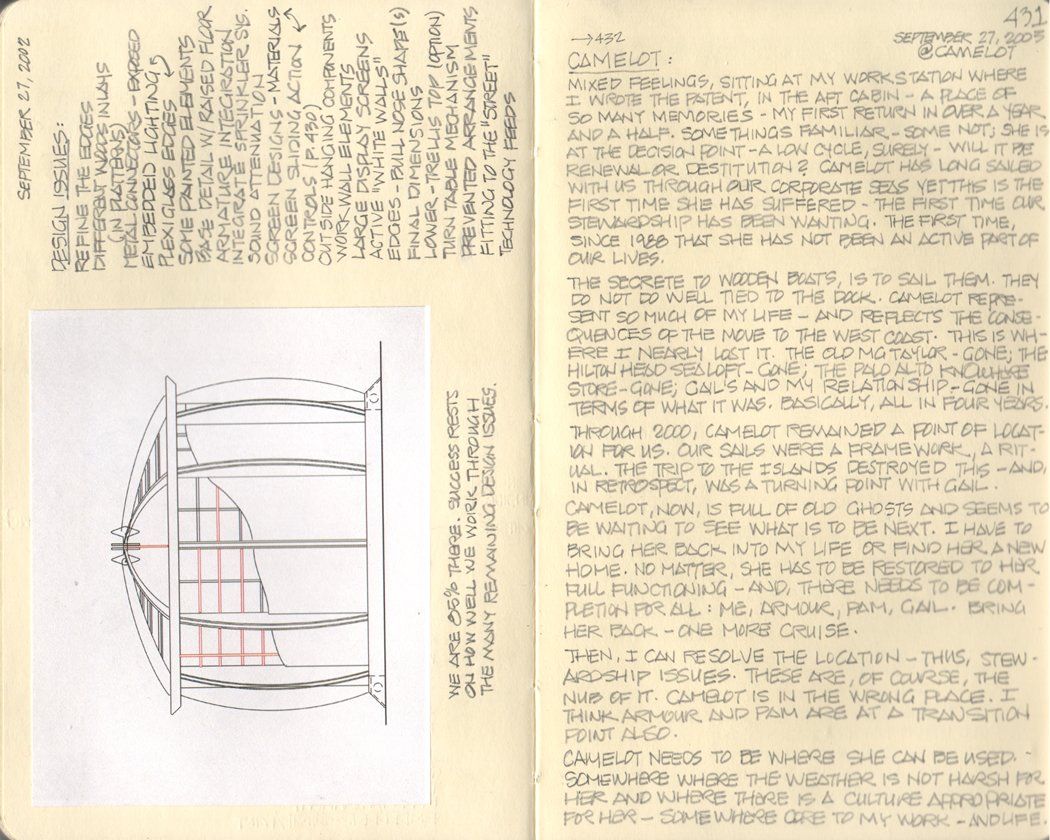 SEPTEMBER 27, 2002
DESIGN ISSUES:
REFINE THE EDGES
DIFFERENT WOODS INLAYS
(IN PATTERNS)
METAL CONNECTORS - EXPOSED
EMBEDDED LIGHTING
PLEXIGLASS EDGES
SOME PAINTED ELEMENTS
BASE DETAIL W/ RAISED FLOOR
ARMATURE INTEGRATION
INTEGRATE SPRINKLER SYS.
SOUND ATTENUATION
SCREEN DESIGNS - MATERIALS
SCREEN SLIDING ACTION
CONTROLS (P. 430)
OUTSIDE HANGING COMPONENTS
WORK WALL ELEMENTS
LARGE DISPLAY SCREENS
ACTIVE "WHITE WALLS"
EDGES - BULL NOSE SHAPE(S)
FINAL DIMENSIONS
LOWER - TRELLIS TOP (OPTION)
TURN TABLE MECHANISM
PREVENTED ARRANGEMENTS
FITTING TO THE "STREET"
TECHNOLOGY FEEDS
WE ARE 85% THERE. SUCCESS RESTS
ON HOW WELL WE WORK THROUGH
THE MANY REMAINING DESIGN ISSUES.
431
→432
SEPTEMBER 27, 2005
@CAMELOT
CAMELOT:
MIXED FEELINGS, SITTING AT MY WORKSTATION WHERE
I WROTE THE PATENT, IN THE AFT CABIN - A PLACE OF
SO MANY MEMORIES - MY FIRST RETURN IN OVER A YEAR
AND A HALF. SOME THINGS FAMILIAR - SOME NOT; SHE IS
AT THE DECISION POINT - A LOW CYCLE, SURELY - WILL IT BE
RENEWAL OR DESTITUTION? CAMELOT HAS LONG SAILED
WITH US THROUGH OUR CORPORATE SEAS YET THIS IS THE
FIRST TIME SHE HAS SUFFERED - THE FIRST TIME OUR
STEWARDSHIP HAS BEEN WANTING. THE FIRST TIME,
SINCE 1988 THAT SHE HAS NOT BEEN AN ACTIVE PART OF
OUR LIVES.
THE SECRETE TO WOODEN BOATS, IS TO SAIL THEM. THEY
DO NOT DO WELL TIED TO THE DOCK. CAMELOT REPRE-
SENT SO MUCH OF MY LIFE - AND REFLECTS THE CONSE-
QUENCES OF THE MOVE TO THE WEST COAST. THIS IS WH-
ERE I NEARLY LOST IT. THE OLD MG TAYLOR - GONE; THE
HILTON HEAD SEA LOFT - GONE; THE PALO ALTO KNOWHERE
STORE - GONE; GAIL'S AND MY RELATIONSHIP - GONE IN
TERMS OF WHAT IT WAS. BASICALLY, ALL IN FOUR YEARS.
THROUGH 2000, CAMELOT REMAINED A POINT OF LOCAT-
ION FOR US. OUR SAILS WERE A FRAMEWORK, A RIT-
UAL. THE TRIP TO THE ISLANDS DESTROYED THIS - AND,
IN RETROSPECT, WAS A TURNING POINT WITH GAIL.
CAMELOT, NOW, IS FULL OF OLD GHOSTS AND SEEMS TO
BE WAITING TO SEE WHAT IS TO BE NEXT. I HAVE TO
BRING HER BACK INTO MY LIFE OR FIND HER A NEW
HOME. NO MATTER, SHE HAS TO BE RESTORED TO HER
FULL FUNCTIONING - AND, THERE NEEDS TO BE COM-
PLETION FOR ALL: ME, ARMOUR, PAM, GAIL. BRING
HER BACK - ONE MORE CRUISE.
THEN, I CAN RESOLVE THE LOCATION - THUS, STEW-
ARDSHIP ISSUES. THESE ARE, OF COURSE, THE
NUB OF IT. CAMELOT IS IN THE WRONG PLACE. I
THINK ARMOUR AND PAM ARE AT A TRANSITION
POINT ALSO.
CAMELOT NEEDS TO BE WHERE SHE CAN BE USED.
SOMEWHERE WHERE THE WEATHER IS NOT HARSH FOR
HER AND WHERE THERE IS A CULTURE APPROPRIATE
FOR HER - SOMEWHERE CORE TO MY WORK - AND LIFE.